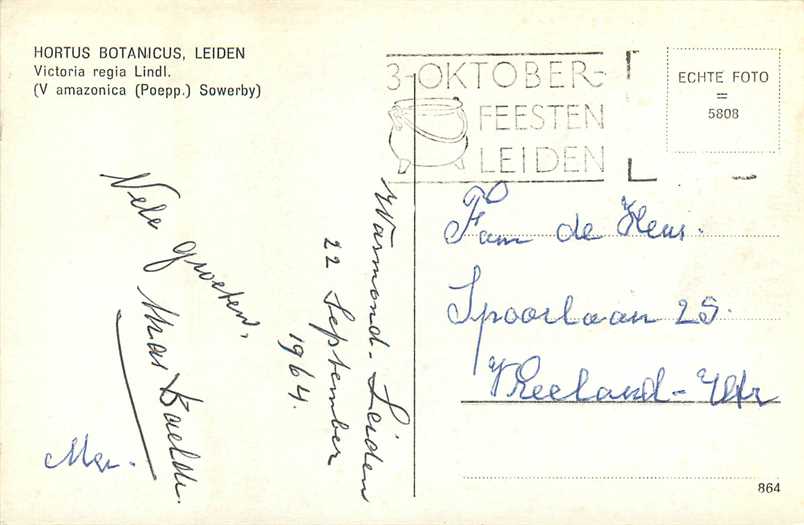 HORTUS BOTANICUS, LEIDEN
Victoria regia Lindl.
(V amazonica (Poepp.) Sowerby)
3-OKTOBER-
FEESTEN
LEIDEN
ECHTE FOTO
=
5808
Warmond-Leiden
22 September
1964.
Vele groeten.
Fam de Heus.
Spoorlaan 25.
Vreeland-Utr
864